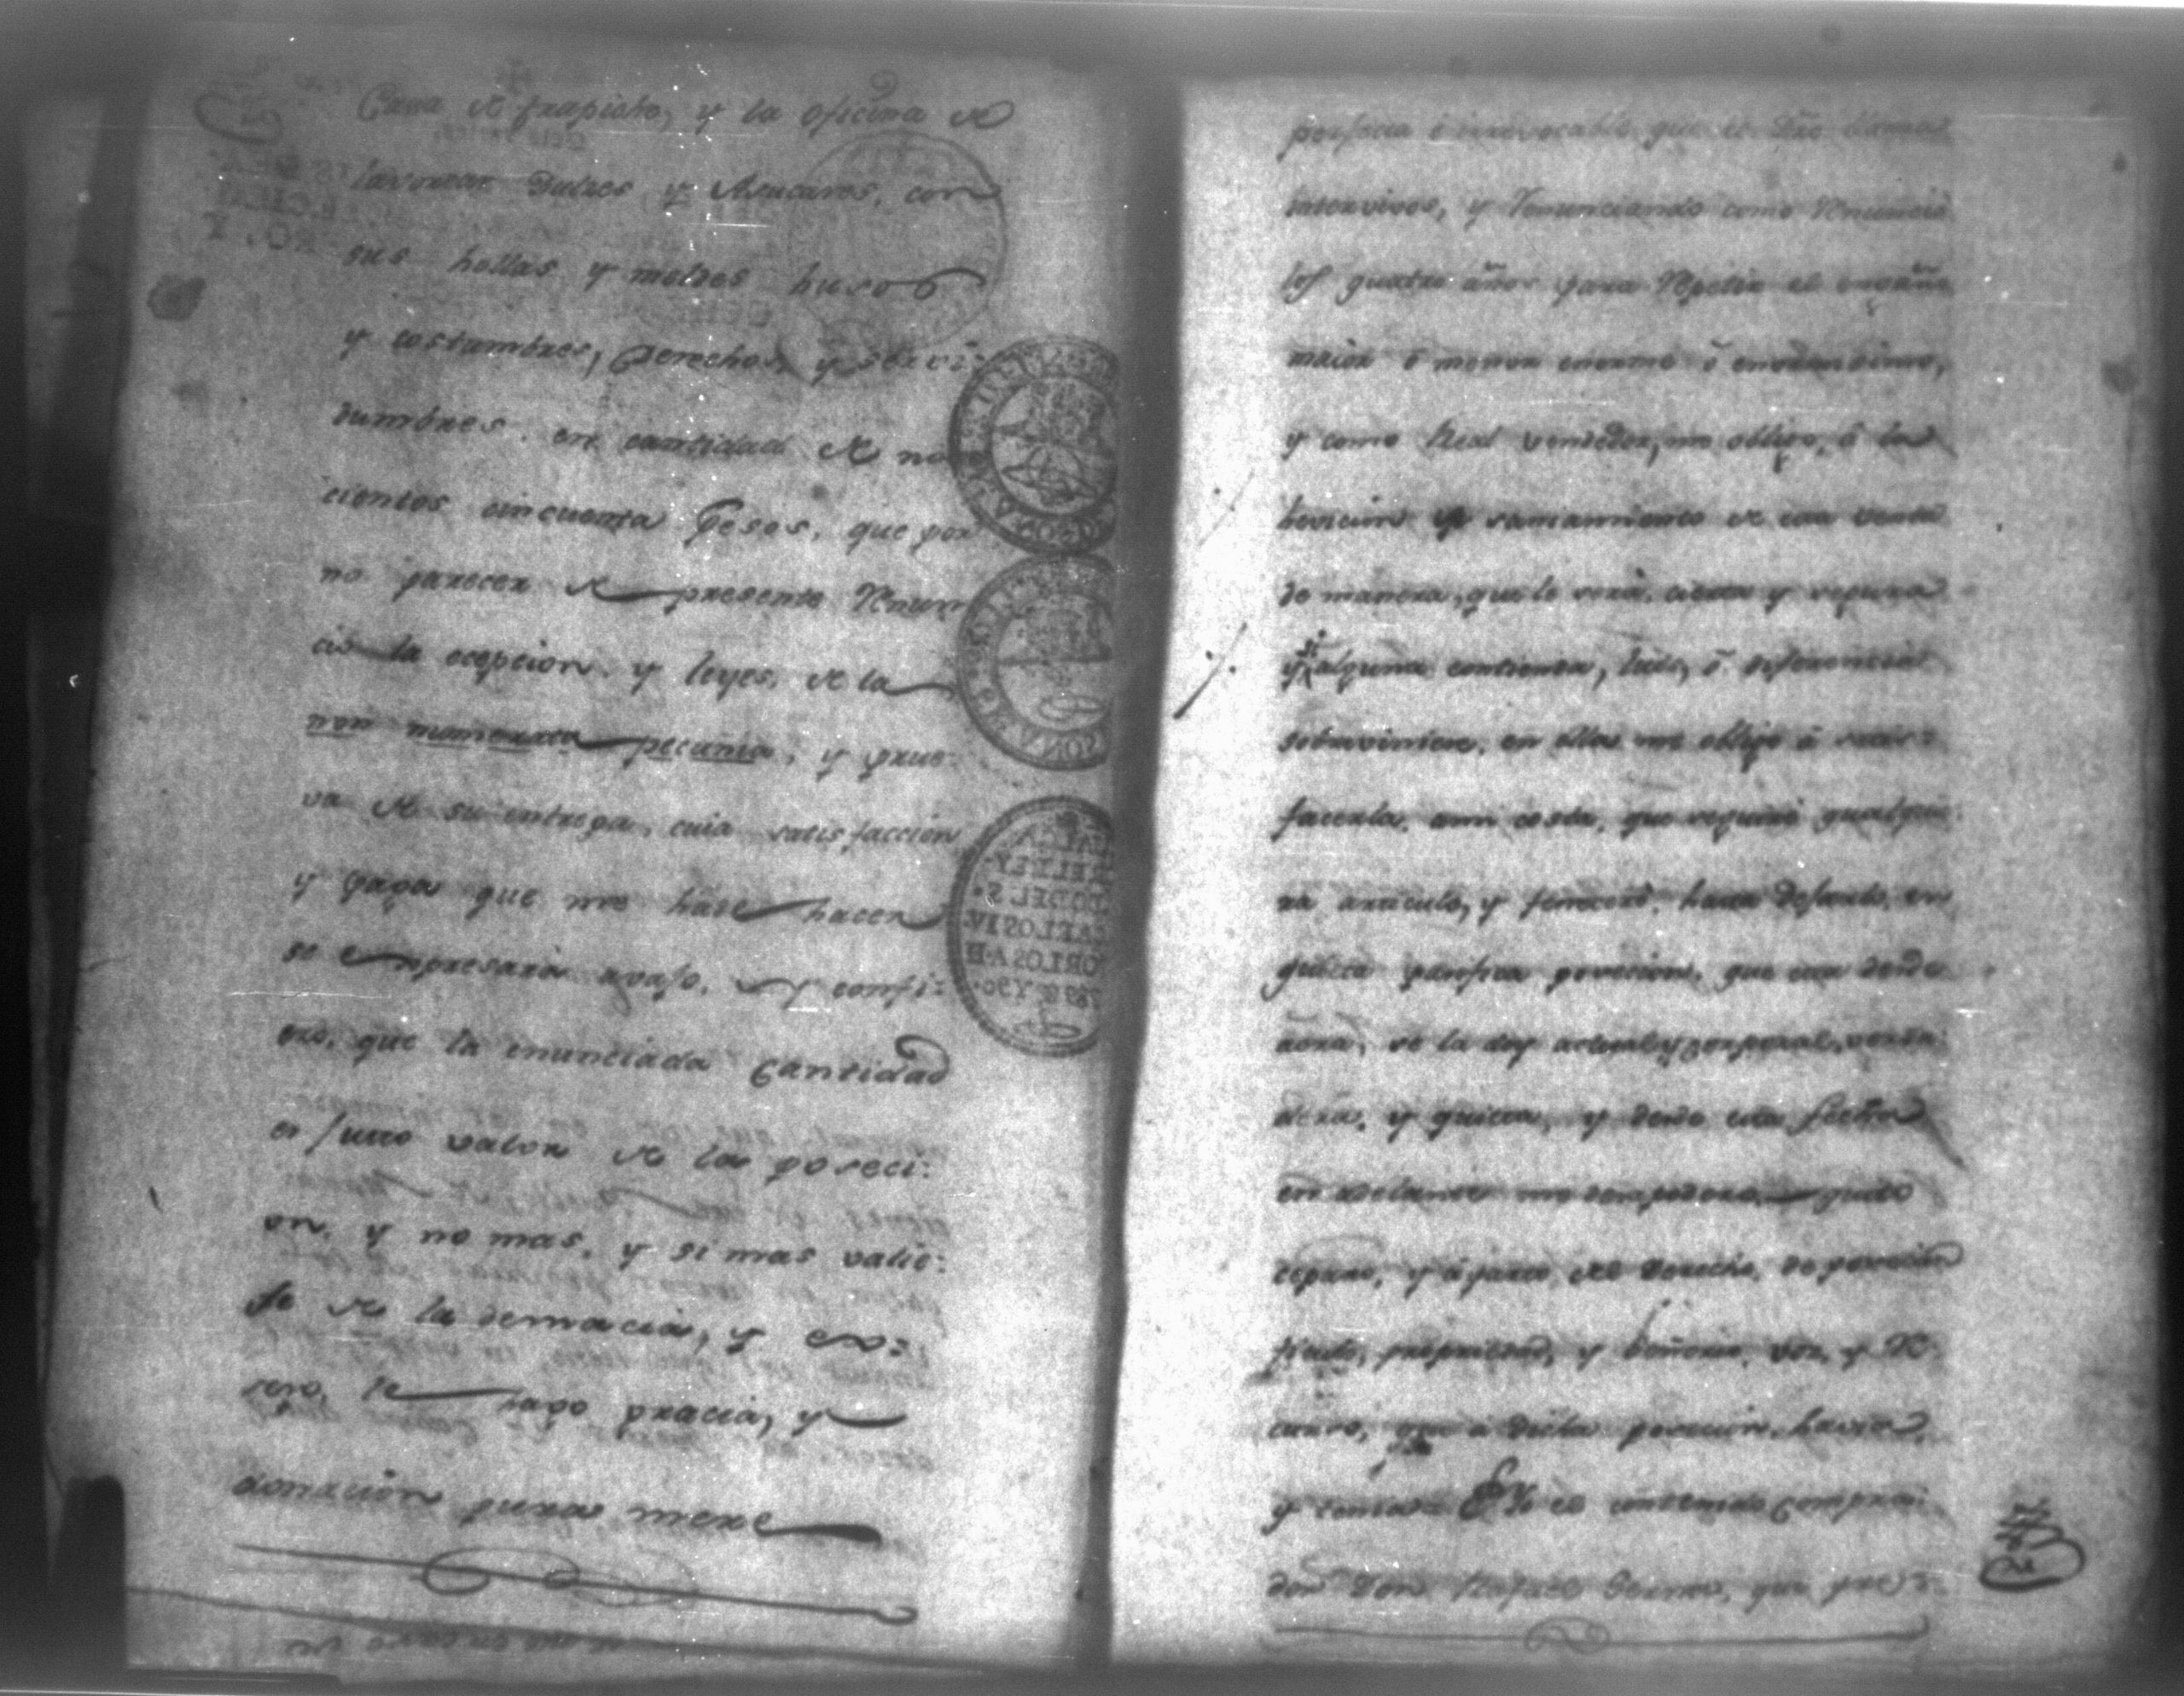 Casa de trapiche, y la oficina de
lavorear Dulces y Asucares, con
sus hollas y moldes husos
y costumbres, Derechos, y servi:
dumbres. en cantidad de no
cientos cincuenta Pesos, que por
no parecer de presente Renun
cio la ecepcion. y leyes, de la
non numerata pecunia, y prue:
va de su entrega, cuia satisfaccion
y paga que me hase hacer
se expresará avajo. y confi:
eso, que la enunciada Cantidad
es justo valor de la poseci:
on, y no mas, y si mas valie:
se de la demacia, y ex:
seso, le hago gracia, y
donacion pura mere
perfecta é irrevocable que el Dro llama
intervivos, y renunciando como Renuncio
los quatro años para Repetir el engaño
maior ó menor enorme ó enormísimo,
y como Real vendedor, me obligo, á la
evicion y saniamiento de esta venta
de manera, que le será, cierta y segura
y si alguna contienda, litis, ó diferencia
sobreviniere, en ellas me obligo á satis:
facerla, ami costa, que seguiré qualquie
ra articulo, y feneceré, hasta dejarlo, en
quieta pacifica posecion, que esta desde
aora, se la doy actual, y corporal, verda
dera, y quieta, y desde esta fecha
en adelante me desapodero, quito
separo, y á parto del derecho, de posecion
titulo, propriedad, y Señorio, voz, y Re
curso, que á dicha posecion, havia,
y tenia Yo el contenido Compra:
dor Don Rafael que pres: